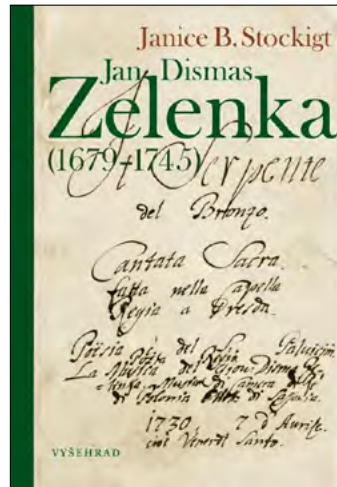 Janice B. Stockigt
Jan Dismas
Zelenka
(1679–1745)
Il Serpente
del Bronzo.
Cantata Sacra.
fatta nella Capella
Regia a Dresda.
Poësia del
La Musica del Dismas
Musica di Camera
di Polonia di
1730, 7 d' Aprile.
cioè Venerdì Santo.
VYŠEHRAD